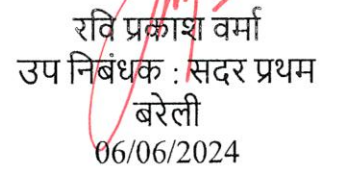 रवि प्रकाश वर्मा
उप निबंधक : सदर प्रथम
बरेली
06/06/2024